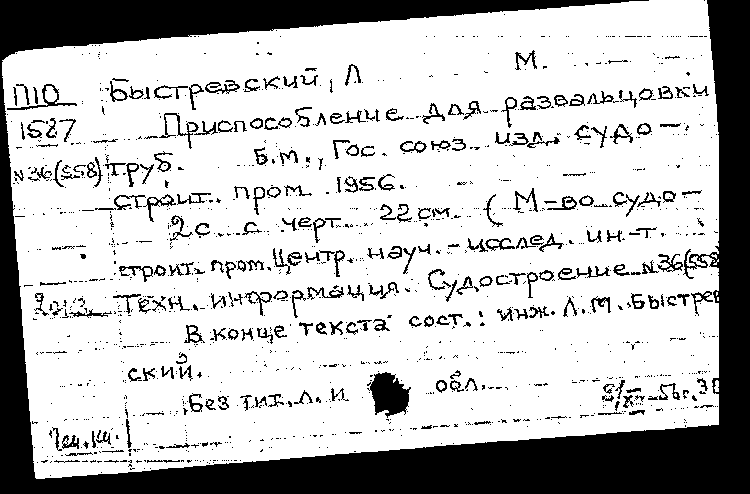 П10 Быстревский, Л М.
1587 Приспособление для развальцовки
N36(558) труб. Б.м., Гос. союз. изд. судо-
строит. пром. 1956.
2 с. с черт. 22 см. (М-во судо-
строит. пром. Центр. науч.-исслед. ин-т.
Техн. информация. Судостроение N36(558
В конце текста сост.: инж. Л.М. Быстрев
ский.
Без тит. л. и обл.